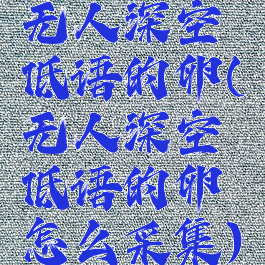 无人深空
低语的卵(
无人深空
低语的卵
怎么采集)